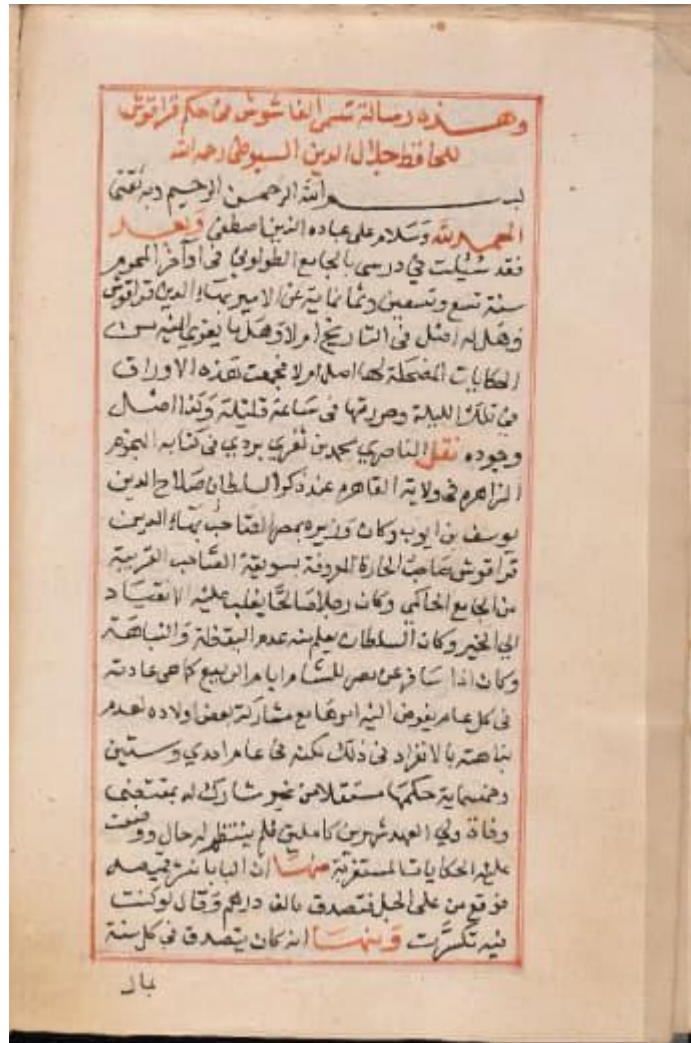 وهذه رسالة تسمى الفاشوش في حكم قراقوش
للحافظ جلال الدين السيوطي رحمه الله
بسم الله الرحمن الرحيم وبه ثقتي
الحمد لله وسلام على عباده الذين اصطفى وبعد
فقد سئلت في درسي بالجامع الطولوني في اواخر المحرم
سنة تسع وتسعين وثمانماية عن الامير بهاء الدين قراقوش
وهل له اصل في التاريخ ام لا وهل ما يعزي اليه من
الحكايات المضحكة لها اصل ام لا فجمعت هذه الاوراق
في تلك الليلة وحررتها في ساعة قليلة وكذا اصل
وجوده نقل الناصري محمد بن تغري بردي في كتابه النجوم
الزاهره في ولاية القاهره عند ذكر السلطان صلاح الدين
يوسف بن ايوب وكان وزيره بمصر الصاحب بهاء الدين
قراقوش صاحب الحارة المعروفة بسويقة الصاحب القريبة
من الجامع الحاكمي وكان رجلا صالحا يغلب عليه الانقياد
الي الخير وكان السلطان يعلم منه عدم اليقظة والنباهة
وكان اذا سافر عن مصر للشام ايام الربيع كما هي عادته
في كل عام يفوض اليه امرها مع مشاركة بعض اولاده لعدم
نباهته بالانفراد في ذلك لكنه في عام احدي وستين
وخمسماية حكمها مستقلا من غير مشارك له بمقتضى
وفاة ولي العهد شهرين كاملين فلم ينتظم له حال ووضعت
عليه الحكايات المستغربة منها ان البابا نشر قميصه
فوقع من على الحبل فتصدق بالف درهم وقال لو كنت
فيه تكسرت ومنها انه كان يتصدق في كل سنة
بال